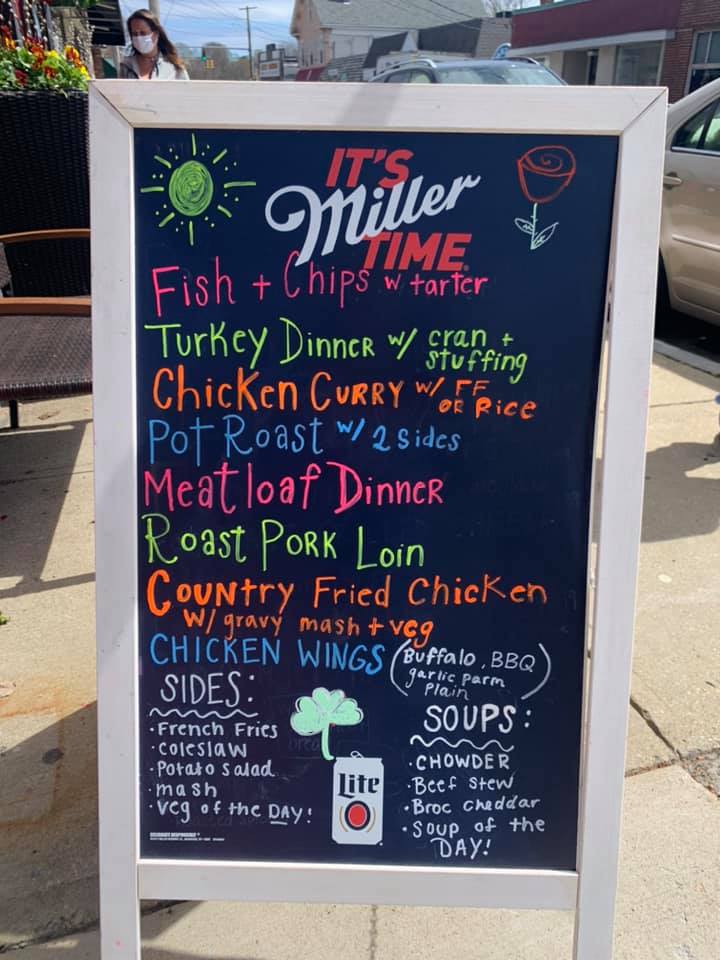 IT'S
Miller
TIME
Fish + Chips w tarter
Turkey Dinner w/ cran +
stuffing
Chicken Curry w/ FF
or Rice
Pot Roast w/ 2 sides
Meatloaf Dinner
Roast Pork Loin
Country Fried Chicken
w/ gravy mash + veg
CHICKEN WINGS (Buffalo, BBQ
garlic parm
Plain)
SIDES:
· French Fries
· coleslaw
· Potato salad
· mash
· veg of the DAY!
Lite
SOUPS:
· CHOWDER
· Beef stew
· Broc cheddar
· Soup of the
DAY!